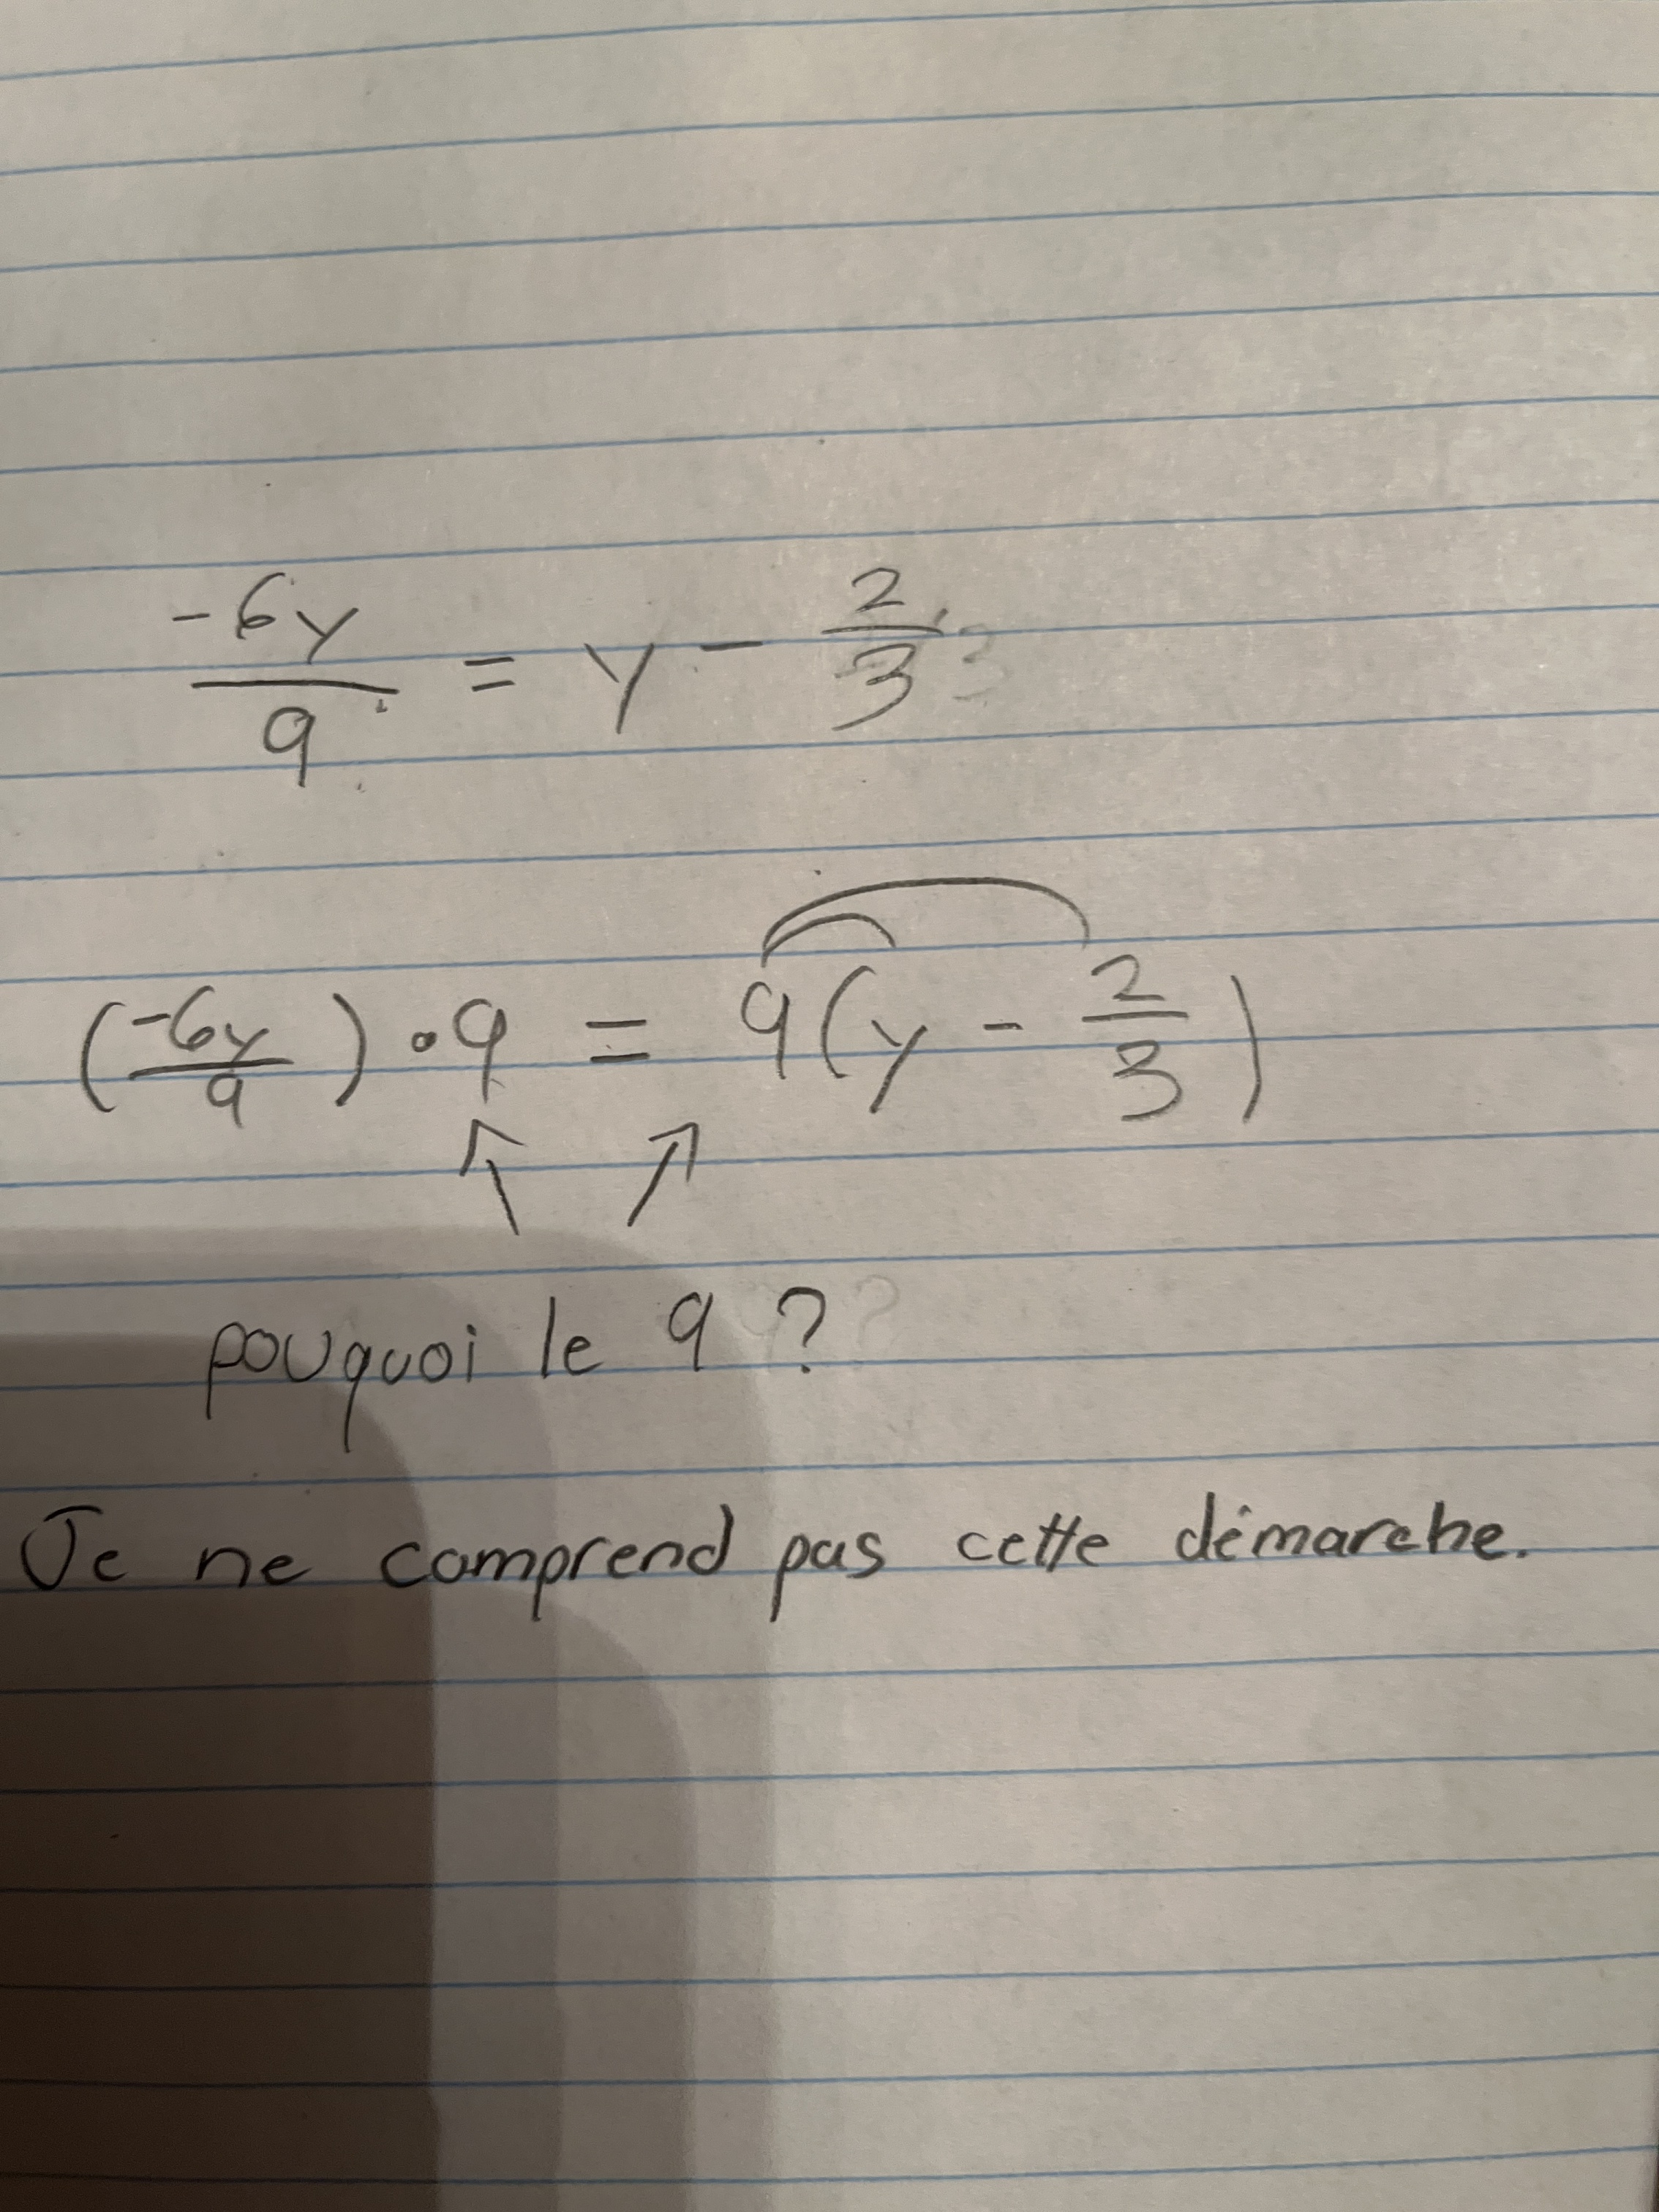 -6y/9 = y - 2/3
(-6y/9) • 9 = 9(y - 2/3)
pouquoi le 9 ?
Je ne comprend pas cette démarche.